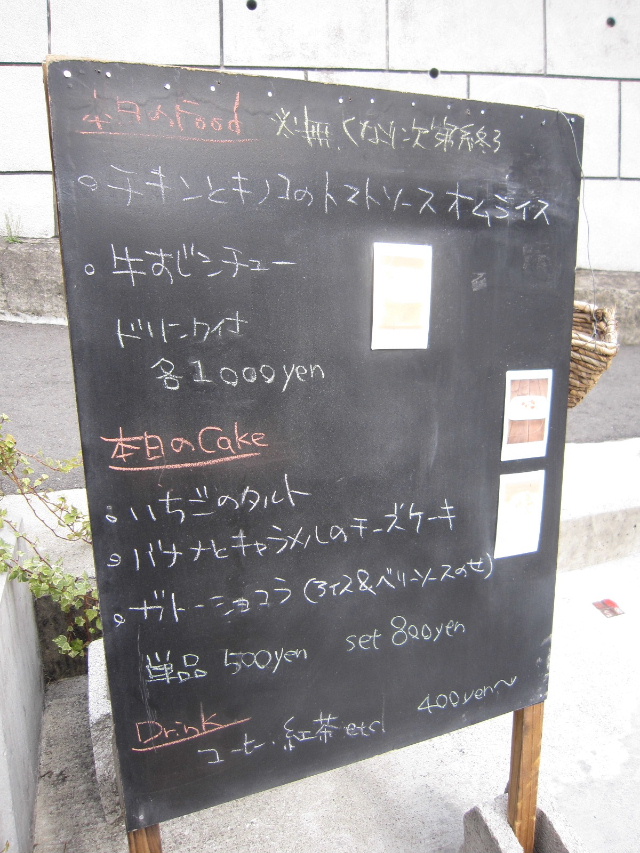 本日のFood ※無くなり次第終了
○チキンとキノコのトマトソースオムライス
○牛すじシチュー
ドリンク付
各1000yen
本日のCake
○いちごのタルト
○バナナとキャラメルのチーズケーキ
○ガトーショコラ(アイス&ベリーソースのせ)
単品 500yen set 800yen
Drink 400yen〜
コーヒー・紅茶 etc